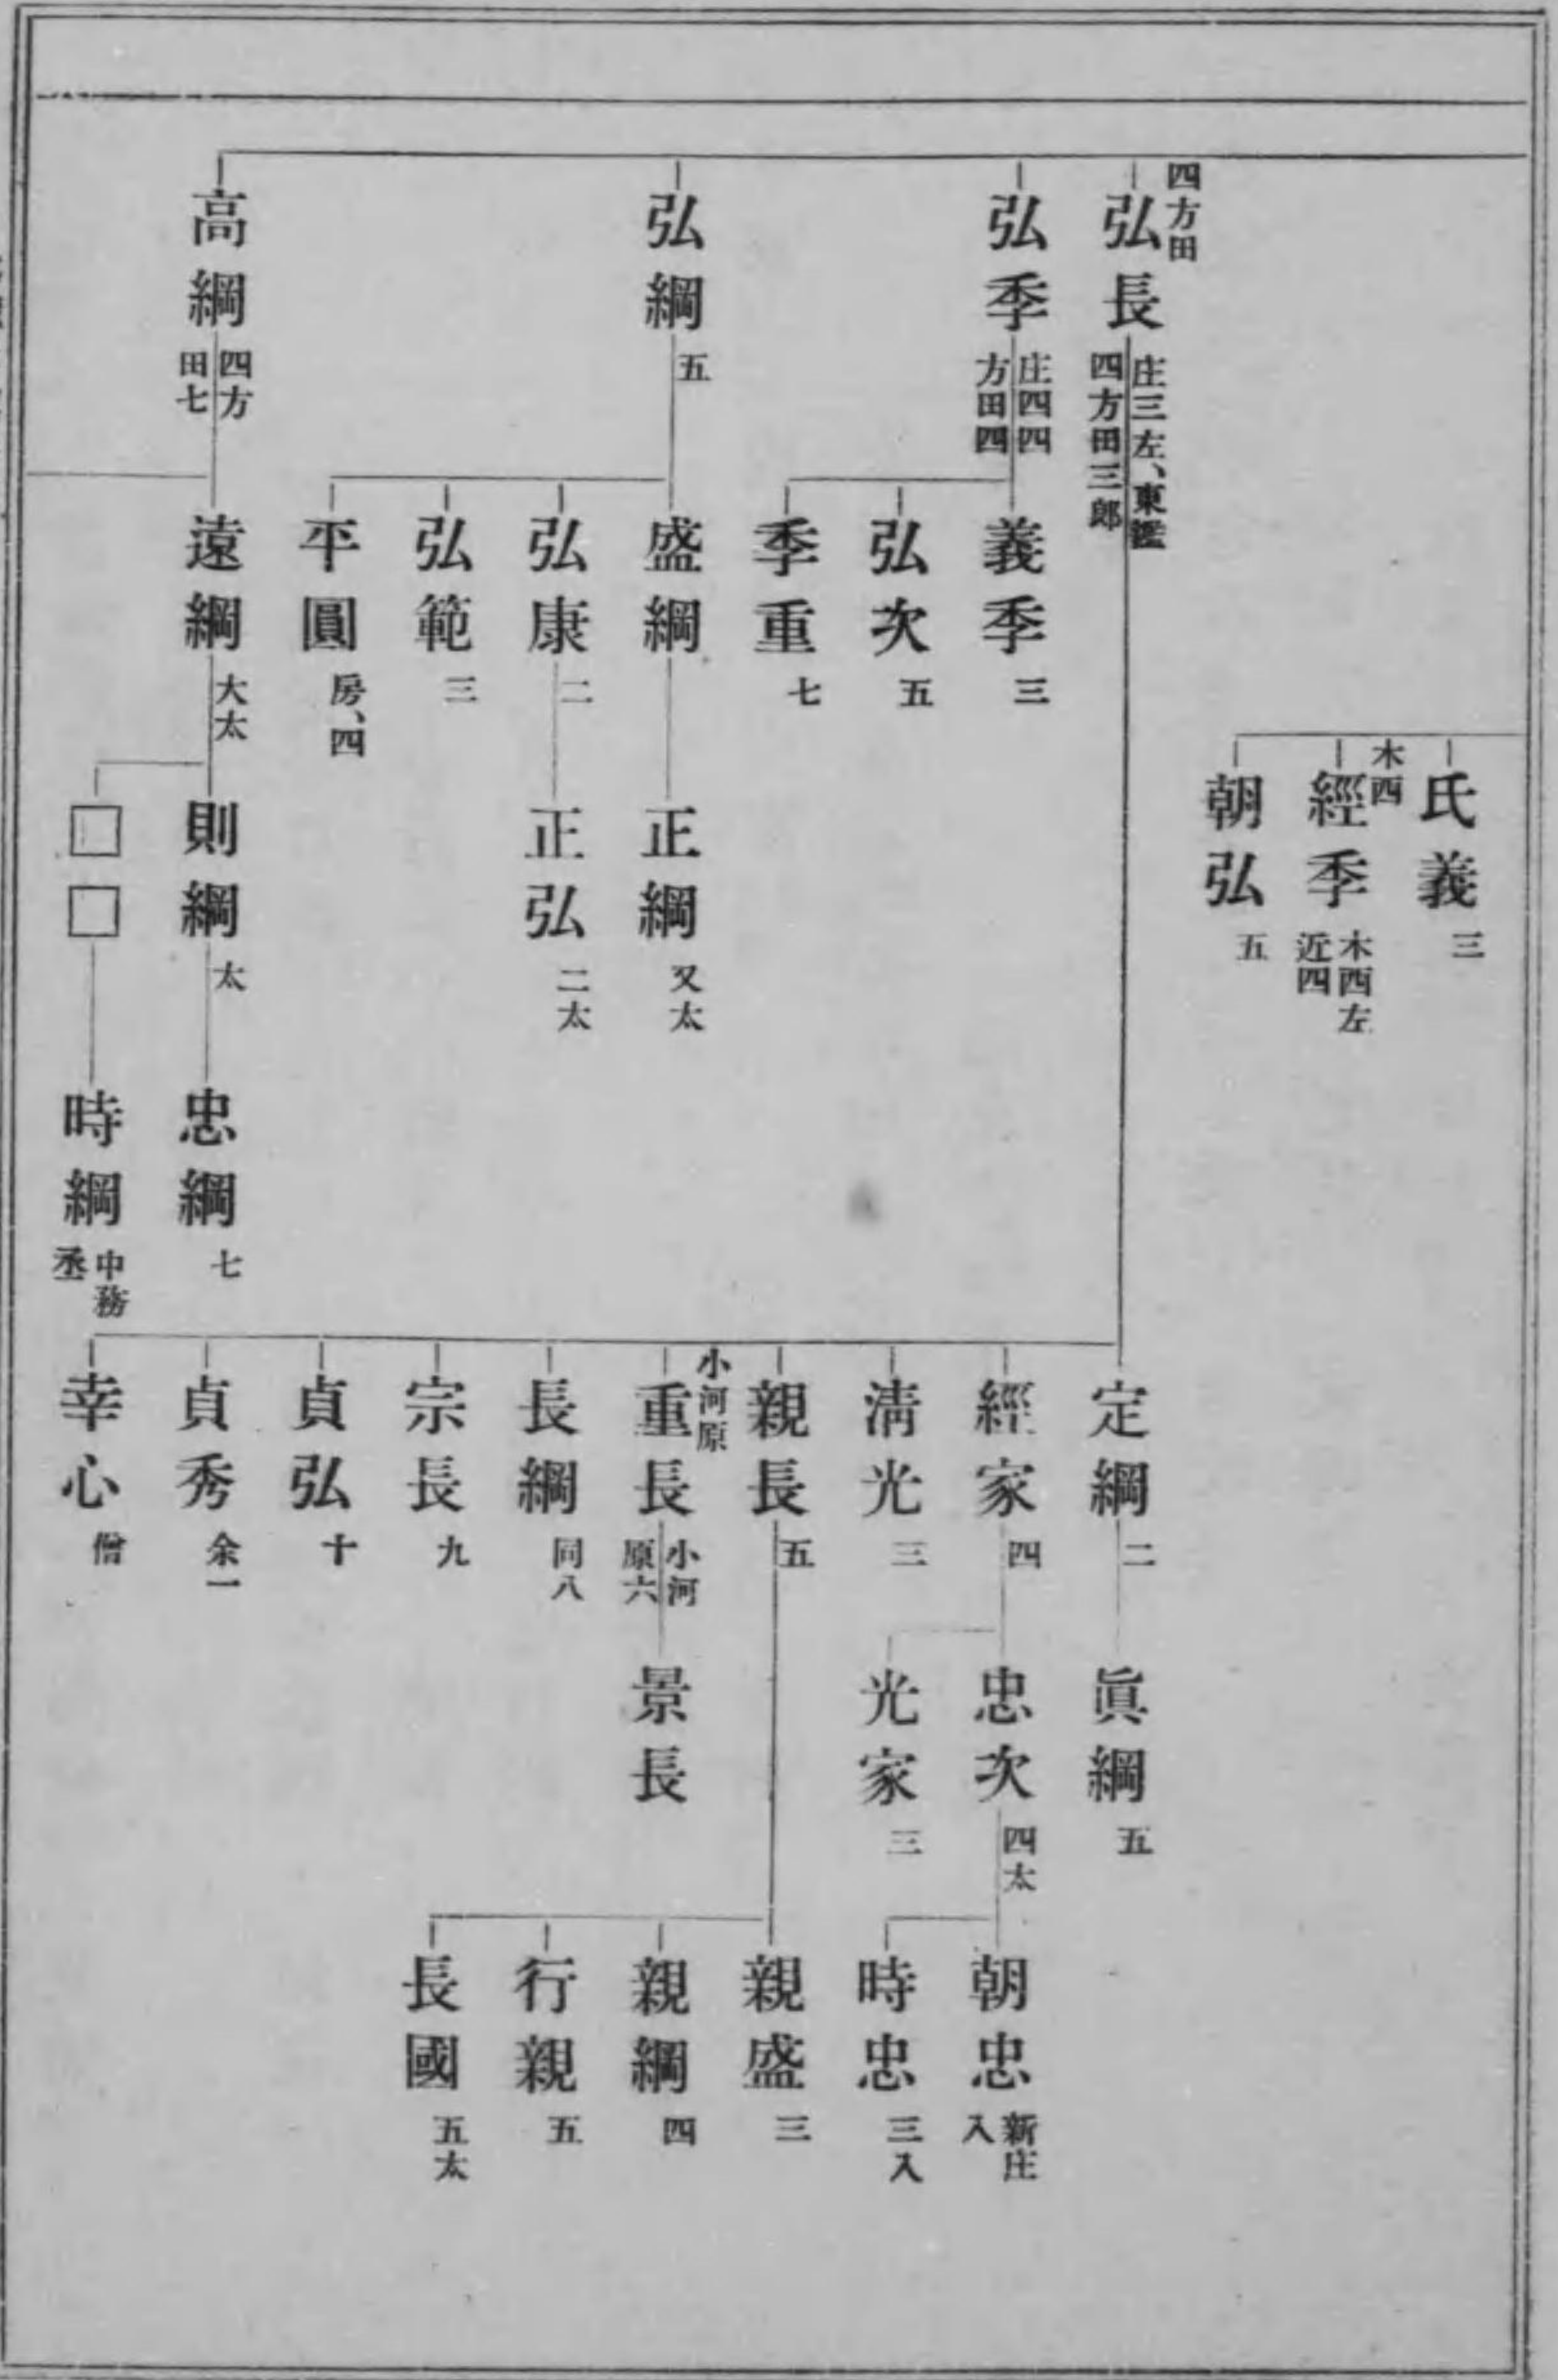 氏義 三
木西
經季 木西左近四
朝弘 五
四方田
弘長 庄三左、東鑑四方田三郎
弘季 庄四四方田四
弘綱 五
高綱 四方田七
義季 三
弘次 五
季重 七
盛綱
弘康 二
弘範 三
平圓 房、四
遠綱 大太
正綱 又太
正弘 二太
則綱 太
□□
忠綱 七
時綱 中務丞
定綱 二
經家 四
淸光 三
親長 五
小河原
重長 小河原六
長綱 同八
宗長 九
貞弘 十
貞秀 余一
幸心 僧
眞綱 五
忠次 四太
光家 三
景長
朝忠 新庄入
時忠 三入
親盛 三
親綱 四
行親 五
長國 五太